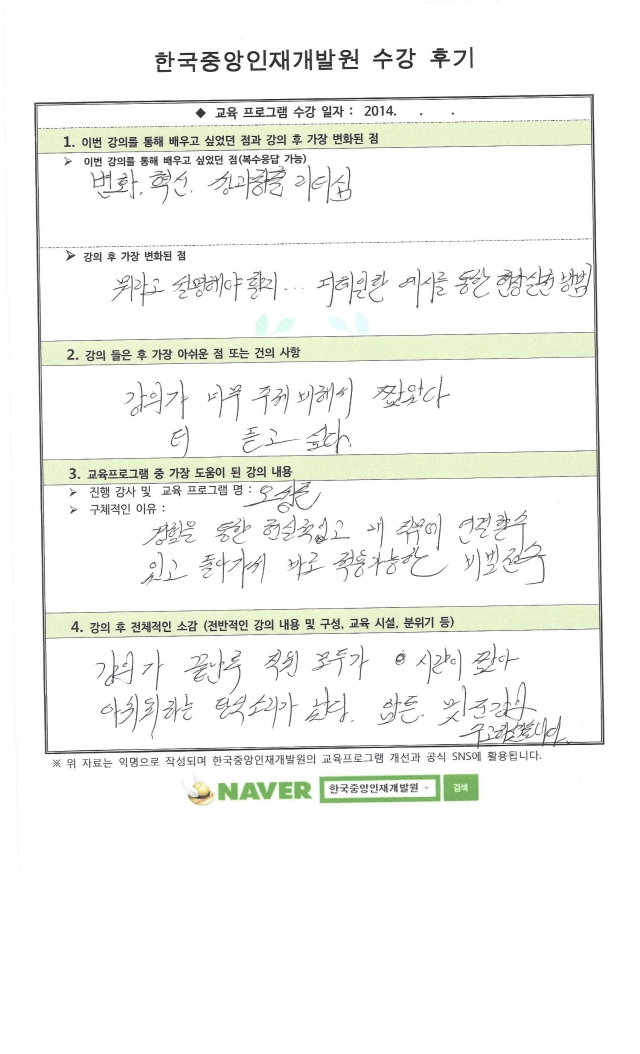 한국중앙인재개발원 수강 후기
◆ 교육 프로그램 수강 일자 : 2014. . .
1. 이번 강의를 통해 배우고 싶었던 점과 강의 후 가장 변화된 점
➢ 이번 강의를 통해 배우고 싶었던 점(복수응답 가능)
변화, 혁신, 성과창출 리더십
➢ 강의 후 가장 변화된 점
뭐라고 설명해야 할지... 예시를 통한 방법
2. 강의 들은 후 가장 아쉬운 점 또는 건의 사항
강의가 너무 주제 비해서 짧았다
더 듣고 싶다.
3. 교육프로그램 중 가장 도움이 된 강의 내용
➢ 진행 강사 및 교육 프로그램 명 :
➢ 구체적인 이유 :
경험을 통한 내 직무에 연결할수
있고 돌아가서 바로 적용가능한 비법전수
4. 강의 후 전체적인 소감 (전반적인 강의 내용 및 구성, 교육 시설, 분위기 등)
강의가 끝난후 직원 모두가 시간이 짧아
아쉬워하는 탄식소리가 났다. 암튼. 멋진강의
수고하셨습니다.
※ 위 자료는 익명으로 작성되며 한국중앙인재개발원의 교육프로그램 개선과 공식 SNS에 활용됩니다.
NAVER 한국중앙인재개발원 검색